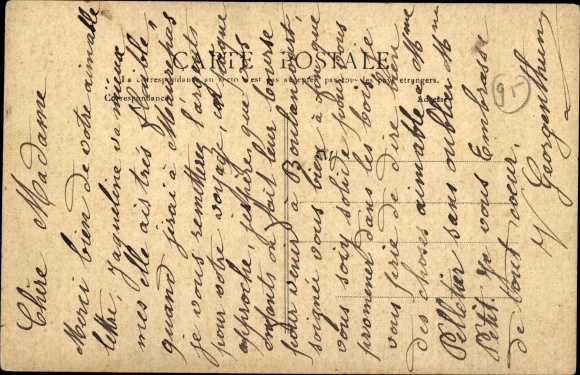 CARTE POSTALE
La correspondance au recto n'est pas acceptée par tous les pays étrangers.
Correspondance
Adresse
95
Chère Madame
Merci bien de votre aimable
lettre, Jaqueline va mieux
mes elle ais très faible,
quand j'irai à
je vous remetterez l'argent
pour votre voyage, car Pâque
approche, j'espère que les
enfants on fait leur bourse
pour venir à Boulancourt,
soignée vous bien à fin que
vous soiy solide pour vous
promener dans les bois. Je
vous prie de dire bien
des choses aimable à Mme
Pelletier sans oublier Mme
Petit. Je vous Embrasse
de tout coeur.
V Georgenthum